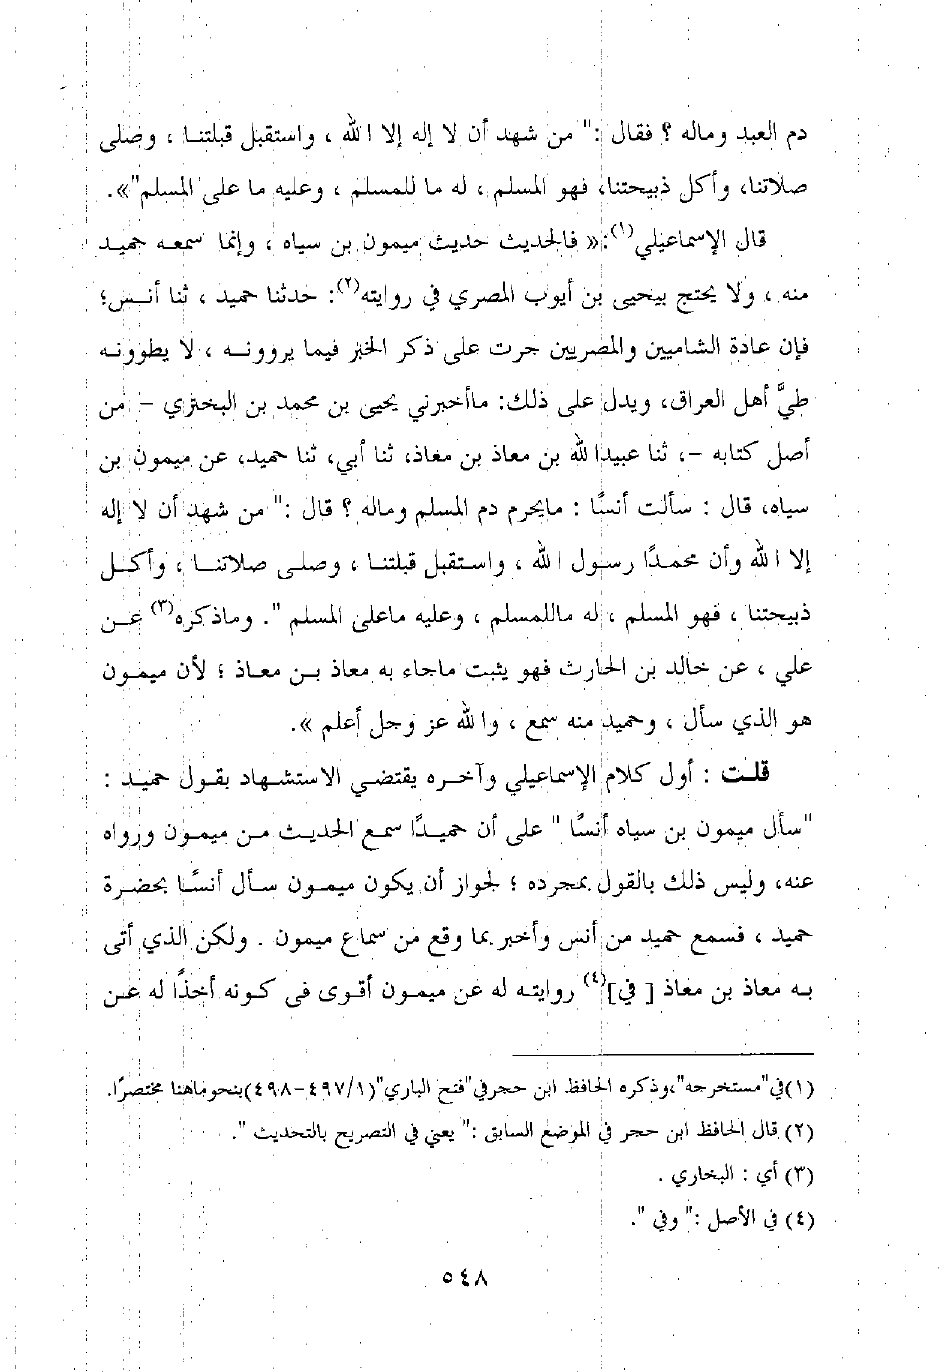 دم العبد وماله ؟ فقال :" من شهد أن لا إله إلا الله ، واستقبل قبلتنا ، وصلى
صلاتنا، وأكل ذبيحتنا، فهو المسلم ، له ما للمسلم ، وعليه ما على المسلم"».
قال الإسماعيلي(١):« فالحديث حديث ميمون بن سياه ، وإنما سمعه حميد
منه ، ولا يحتج بيحيى بن أيوب المصري في روايته(٢): حدثنا حميد ، ثنا أنس؛
فإن عادة الشاميين والمصريين جرت على ذكر الخبر فيما يروونه ، لا يطوونه
طيَّ أهل العراق، ويدل على ذلك: ماأخبرني يحيى بن محمد بن البختري – من
أصل كتابه –، ثنا عبيدالله بن معاذ بن معاذ، ثنا أبي، ثنا حميد، عن ميمون بن
سياه، قال : سألت أنسًا : مايحرم دم المسلم وماله ؟ قال :" من شهد أن لا إله
إلا الله وأن محمدًا رسول الله ، واستقبل قبلتنا ، وصلى صلاتنا ، وأكل
ذبيحتنا ، فهو المسلم ، له ماللمسلم ، وعليه ماعلى المسلم ". وماذكره(٣) عن
علي ، عن خالد بن الحارث فهو يثبت ماجاء به معاذ بن معاذ ؛ لأن ميمون
هو الذي سأل ، وحميد منه سمع ، والله عز وجل أعلم ».
قلت : أول كلام الإسماعيلي وآخره يقتضي الاستشهاد بقول حميد :
"سأل ميمون بن سياه أنسًا " على أن حميدًا سمع الحديث من ميمون ورواه
عنه، وليس ذلك بالقول بمجرده ؛ لجواز أن يكون ميمون سأل أنسًا بحضرة
حميد ، فسمع حميد من أنس وأخبر بما وقع من سماع ميمون . ولكن الذي أتى
به معاذ بن معاذ [ في](٤) روايته له عن ميمون أقوى في كونه أخذًا له عن
(١)في"مستخرجه"،وذكره الحافظ ابن حجرفي"فتح الباري"(٤٩٧/١-٤٩٨)بنحوماهنا مختصرًا.
(٢) قال الحافظ ابن حجر في الموضع السابق :" يعني في التصريح بالتحديث ".
(٣) أي : البخاري .
(٤) في الأصل :" وفي ".
٥٤٨